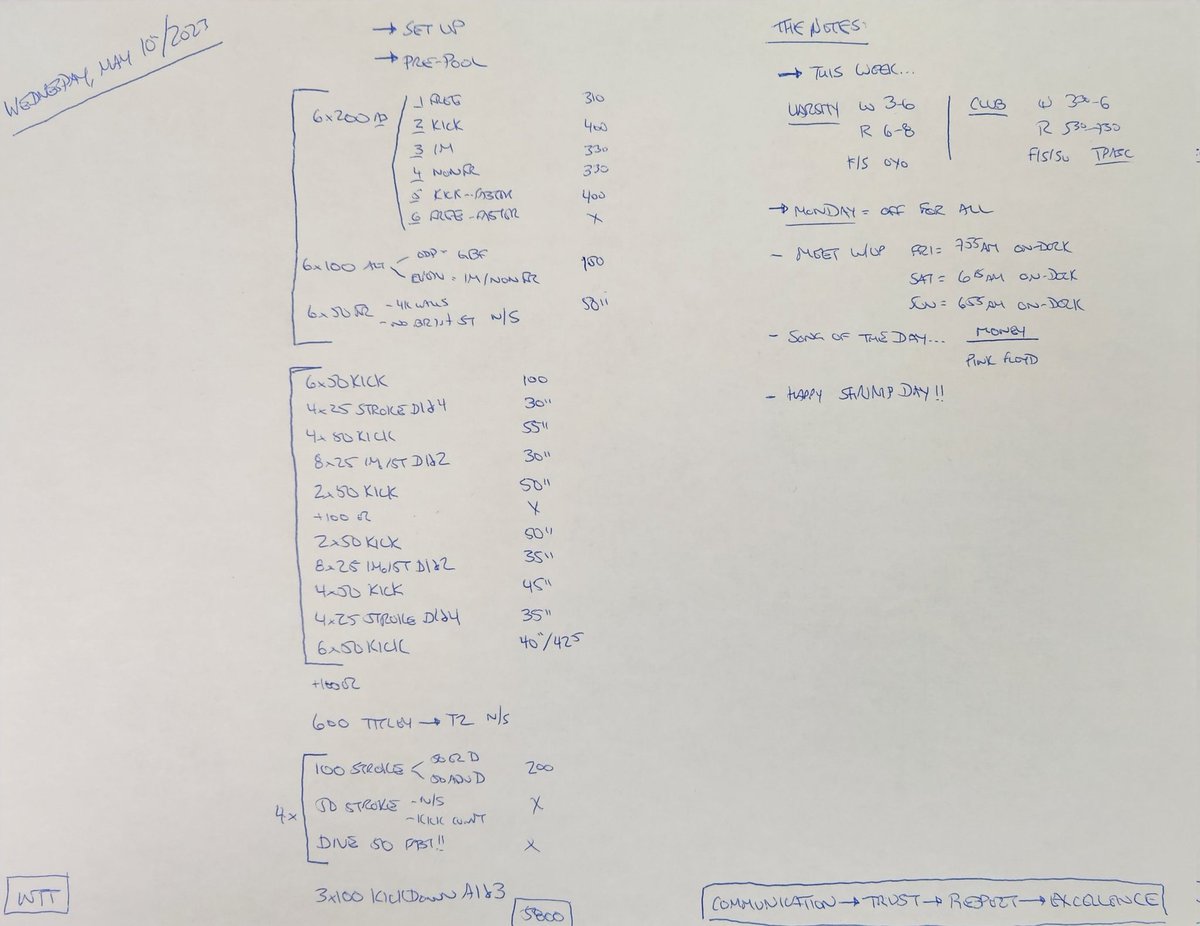 WEDNESDAY, MAY 10/2023
→ SET UP
→ PRE-POOL
6x200
1 FREE 310
2 KICK 400
3 IM 330
4 NON FR 330
5 KICK-FASTER 400
6 FREE-FASTER X
6x100 ALT
ODD =
EVEN = IM/NON FR
6x50 FR - 4K WALLS 50"
- NO BR IN + ST N/S
6x50 KICK 100
4x25 STROKE D1&4 30"
4x50 KICK 55"
8x25 IM/ST D1&2 30"
2x50 KICK 50"
+100 X
2x50 KICK 50"
8x25 IMO/ST D1&2 35"
4x50 KICK 45"
4x25 STROKE D1&4 35"
6x50 KICK 40"/425
+100
600 → T2 N/S
4x
100 STROKE 200
50 STROKE - N/S X
- KICK COUNT
DIVE 50 FAST!! X
3x100 KICKDOWN A1&3
5800
WTT
THE NOTES:
→ THIS WEEK...
VARSITY W 3-6
R 6-8
F/S OYO
CLUB W 330-6
R 530-730
F/S/SU TPASC
→ MONDAY = OFF FOR ALL
- MEET W/UP FRI = 735AM ON-DECK
SAT = 615AM ON-DECK
SUN = 655AM ON-DECK
- SONG OF THE DAY... MONEY
PINK FLOYD
- HAPPY SHRIMP DAY!!
COMMUNICATION → TRUST → RESPECT → EXCELLENCE